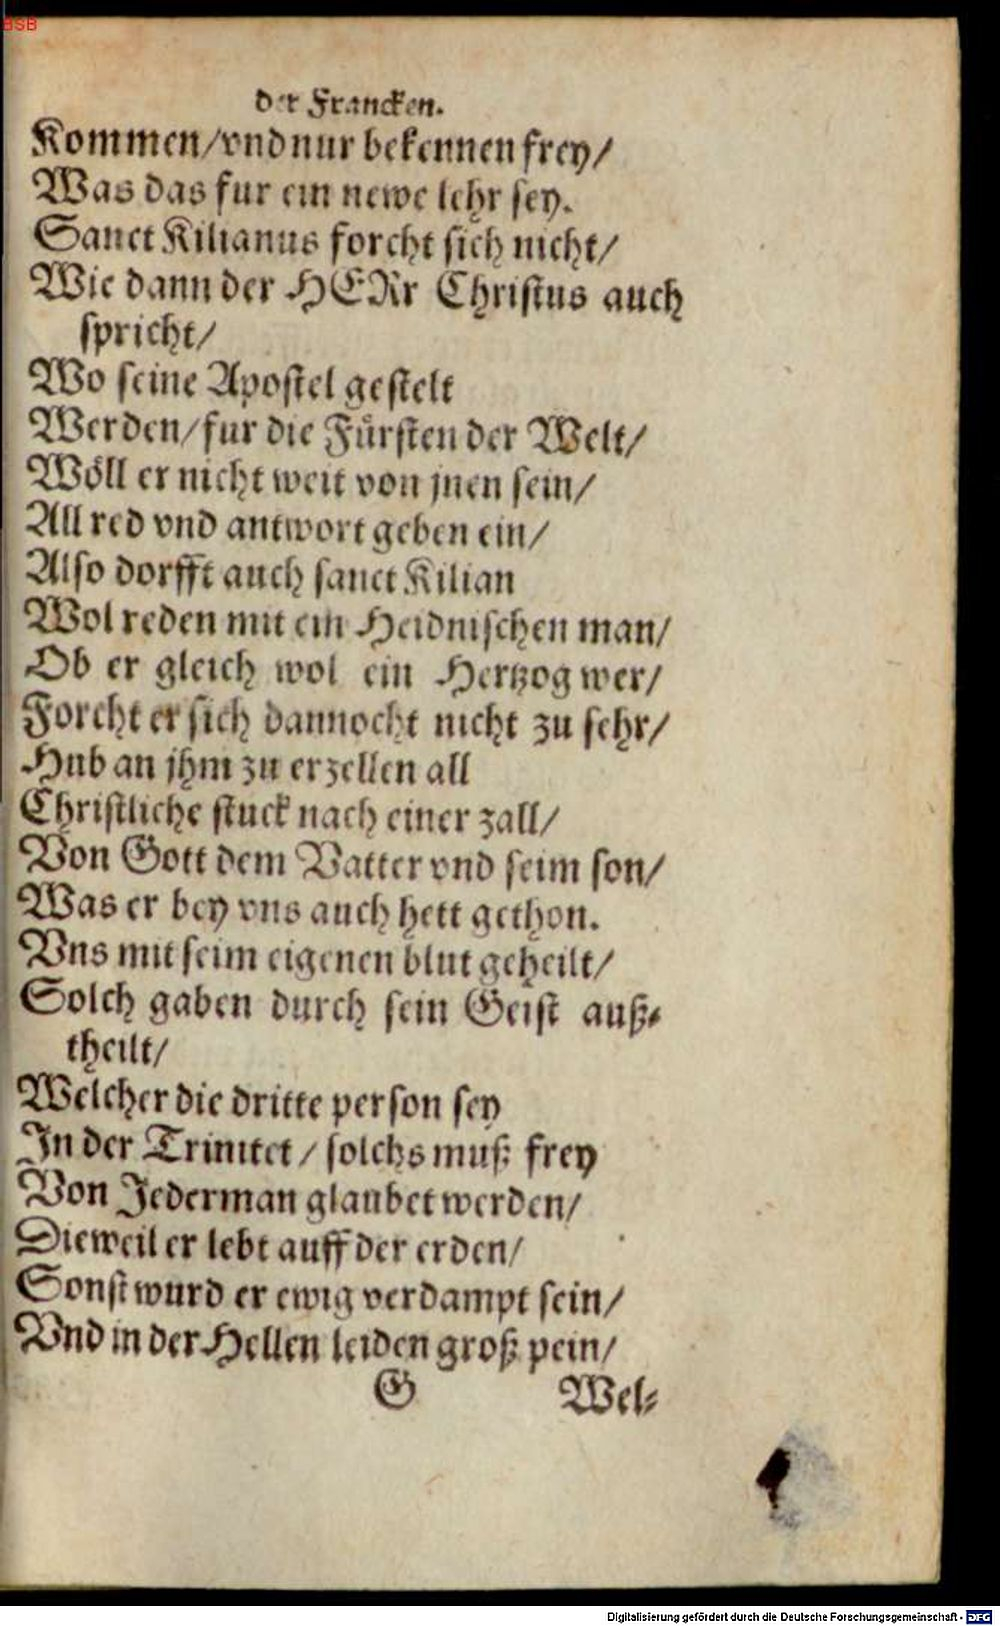 BSB
der Francken.
Kommen/vnd nur bekennen frey/
Was das fur ein newe lehr sey.
Sanct Kilianus forcht sich nicht/
Wie dann der HERr Christus auch
spricht/
Wo seine Apostel gestelt
Werden/fur die Fürsten der Welt/
Wöll er nicht weit von jnen sein/
All red vnd antwort geben ein/
Also dorfft auch sanct Kilian
Wol reden mit ein Heidnischen man/
Ob er gleich wol ein Hertzog wer/
Forcht er sich dannocht nicht zu sehr/
Hub an jhm zu erzellen all
Christliche stuck nach einer zall/
Von Gott dem Vatter vnd seim son/
Was er bey vns auch hett gethon.
Vns mit seim eigenen blut geheilt/
Solch gaben durch sein Geist auß⸗
theilt/
Welcher die dritte person sey
In der Trinitet / solchs muß frey
Von Jederman glaubet werden/
Dieweil er lebt auff der erden/
Sonst wurd er ewig verdampt sein/
Vnd in der Hellen leiden groß pein/
G Wel⸗
Digitalisierung gefördert durch die Deutsche Forschungsgemeinschaft - DFG